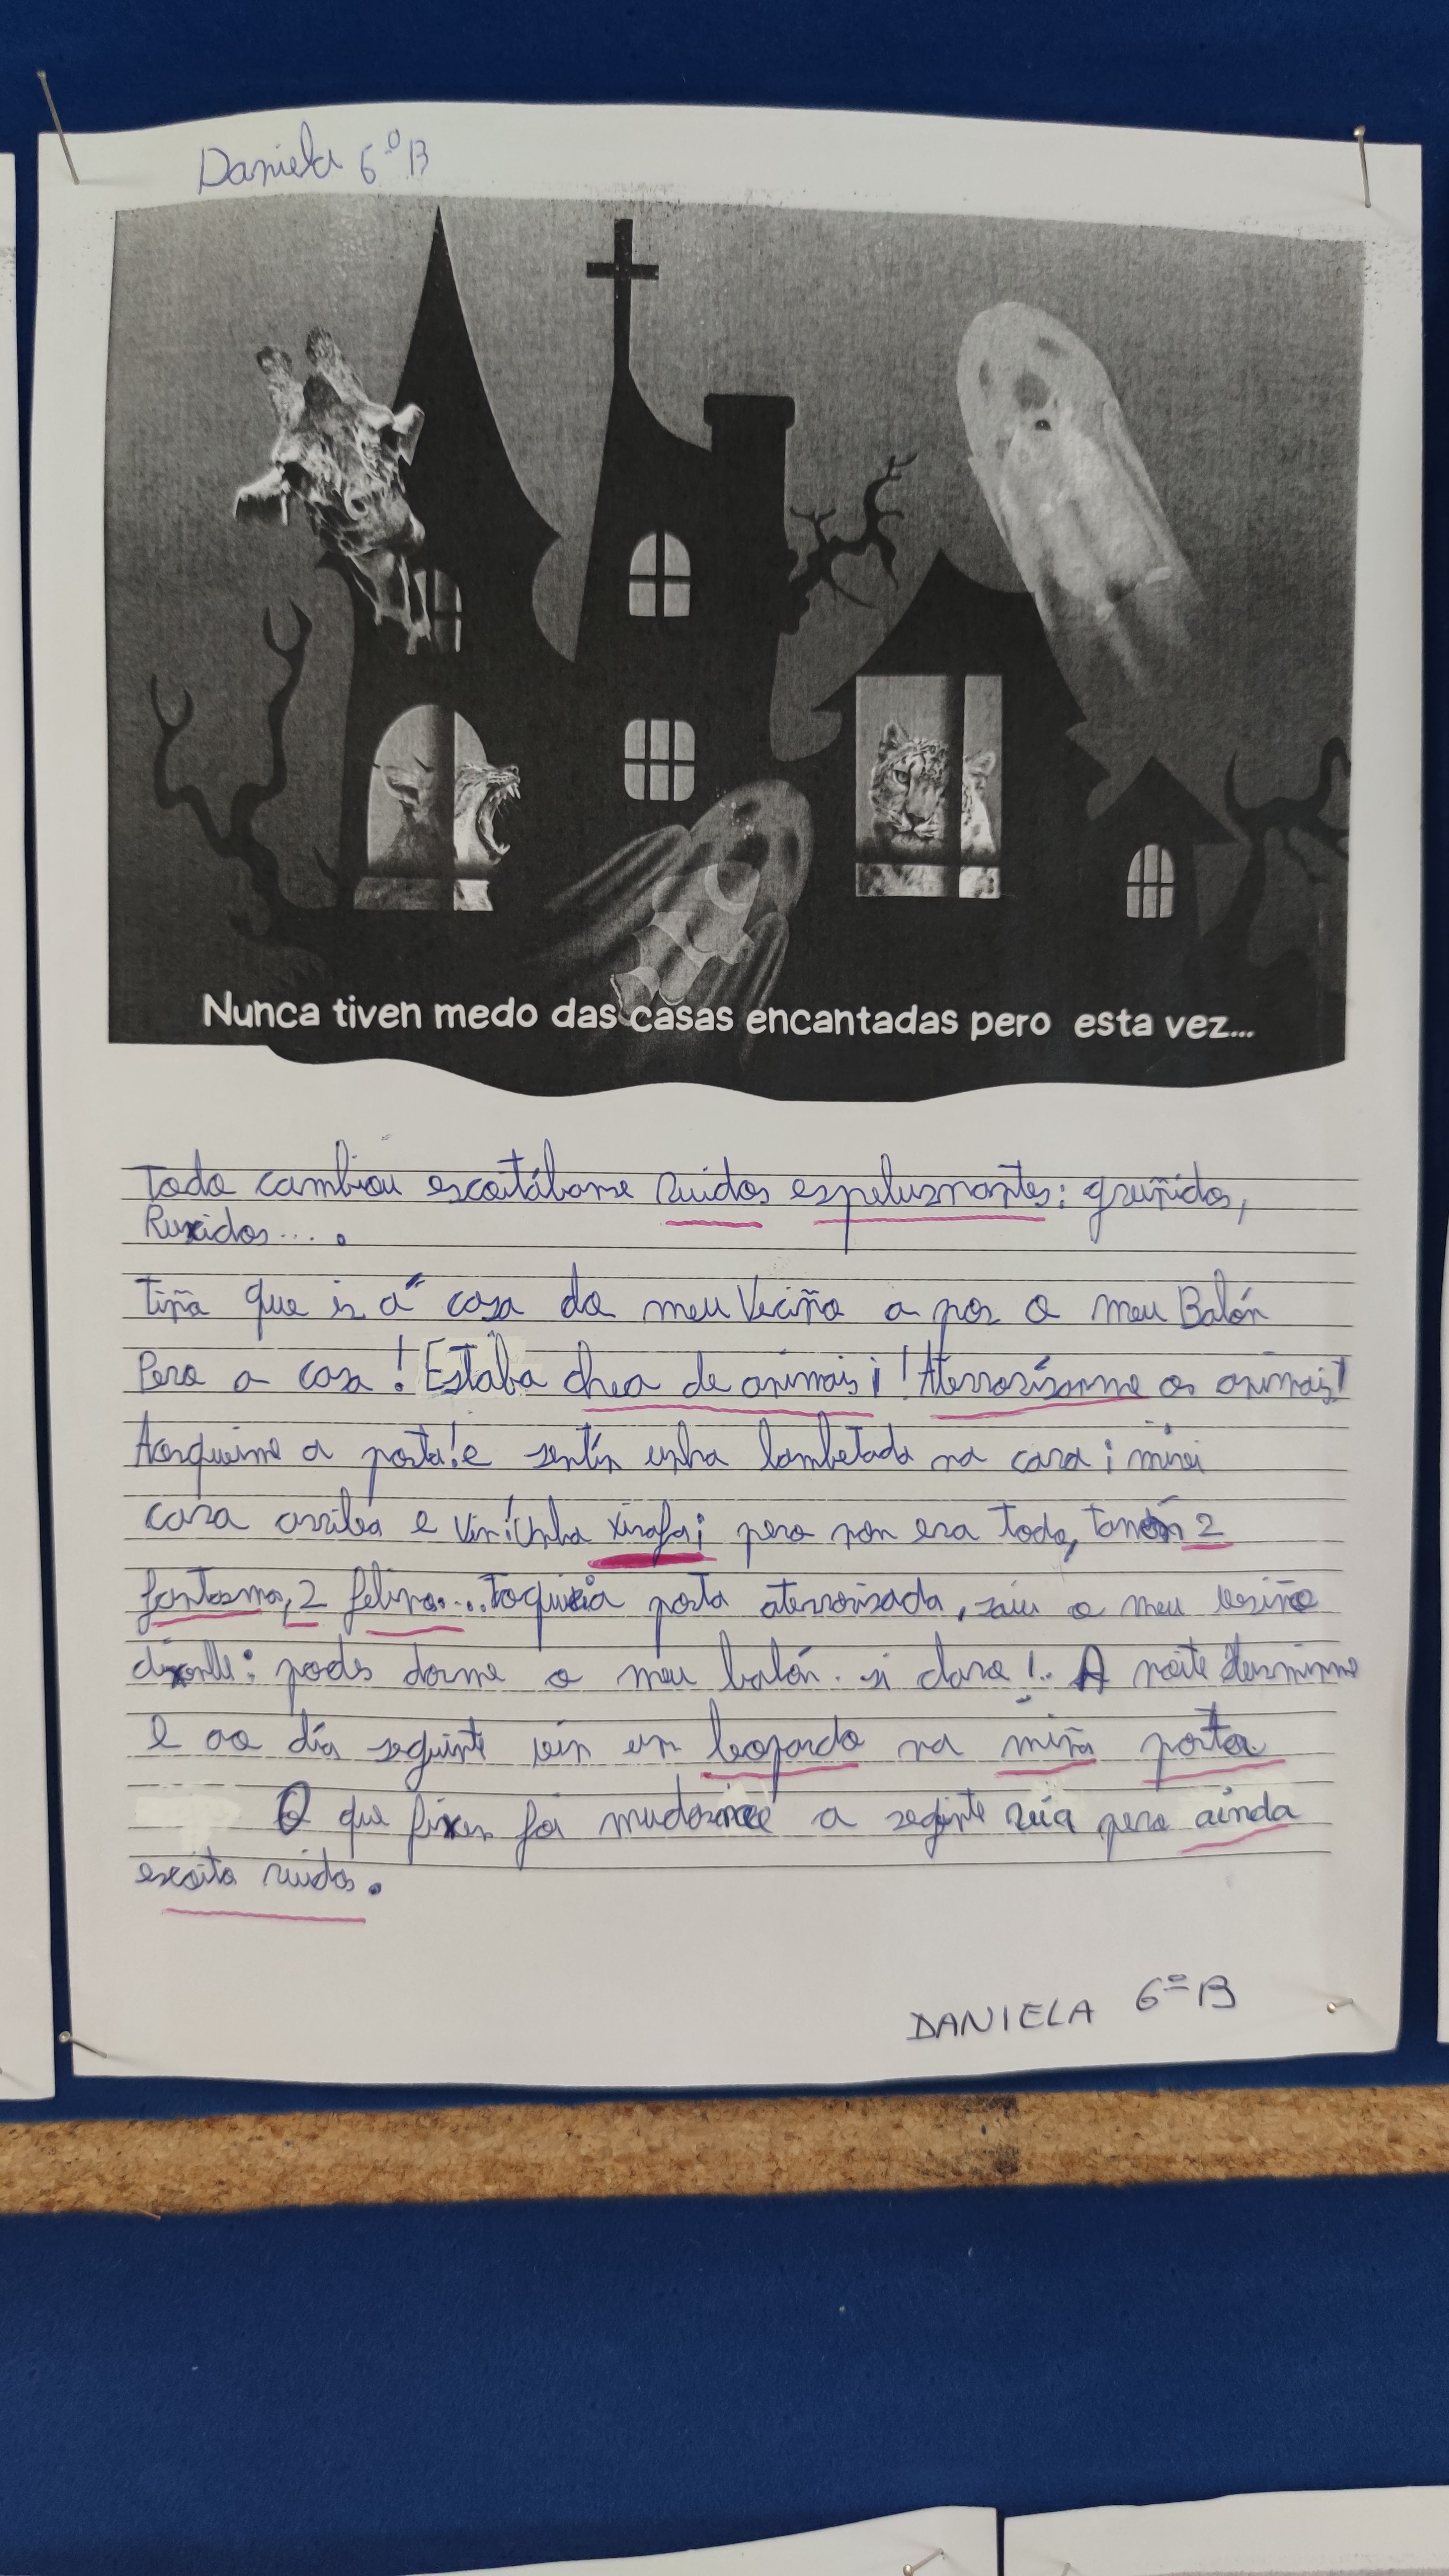 Daniela 6º B
Nunca tiven medo das casas encantadas pero esta vez...
Todo cambiou escoitábanse ruidos espeluznantes: gruñidos,
Ruxidos.... .
Tiña que ir á casa do meu Veciño a por o meu Balón
Pero a casa! Estaba chea de animais¡ ! Aterrorízanme os animais!
Acerqueime a porta! e sentín unha lambetada na cara ¡ mirei
cara arriba e vin ¡Unha xirafa¡ pero non era todo, tamén 2
fantasmas, 2 felinos.... Toquei a porta aterrorizada, saiu o meu veciño
dixenlle: podes darme o meu balón. si claro!.. A noite durminme
e ao día seguinte vin un leopardo na miña porta
O que fixen foi mudarme a seginte rúa pero ainda
escoito ruidos.
DANIELA 6º B